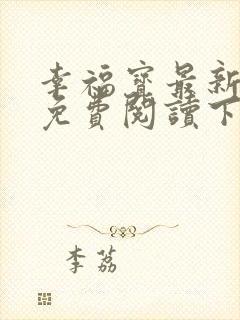 幸福寶最新
免費閱讀下
李荔